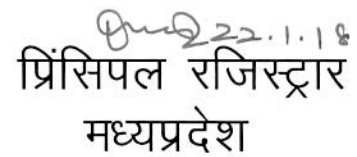 22.1.18
प्रिंसिपल रजिस्ट्रार
मध्यप्रदेश